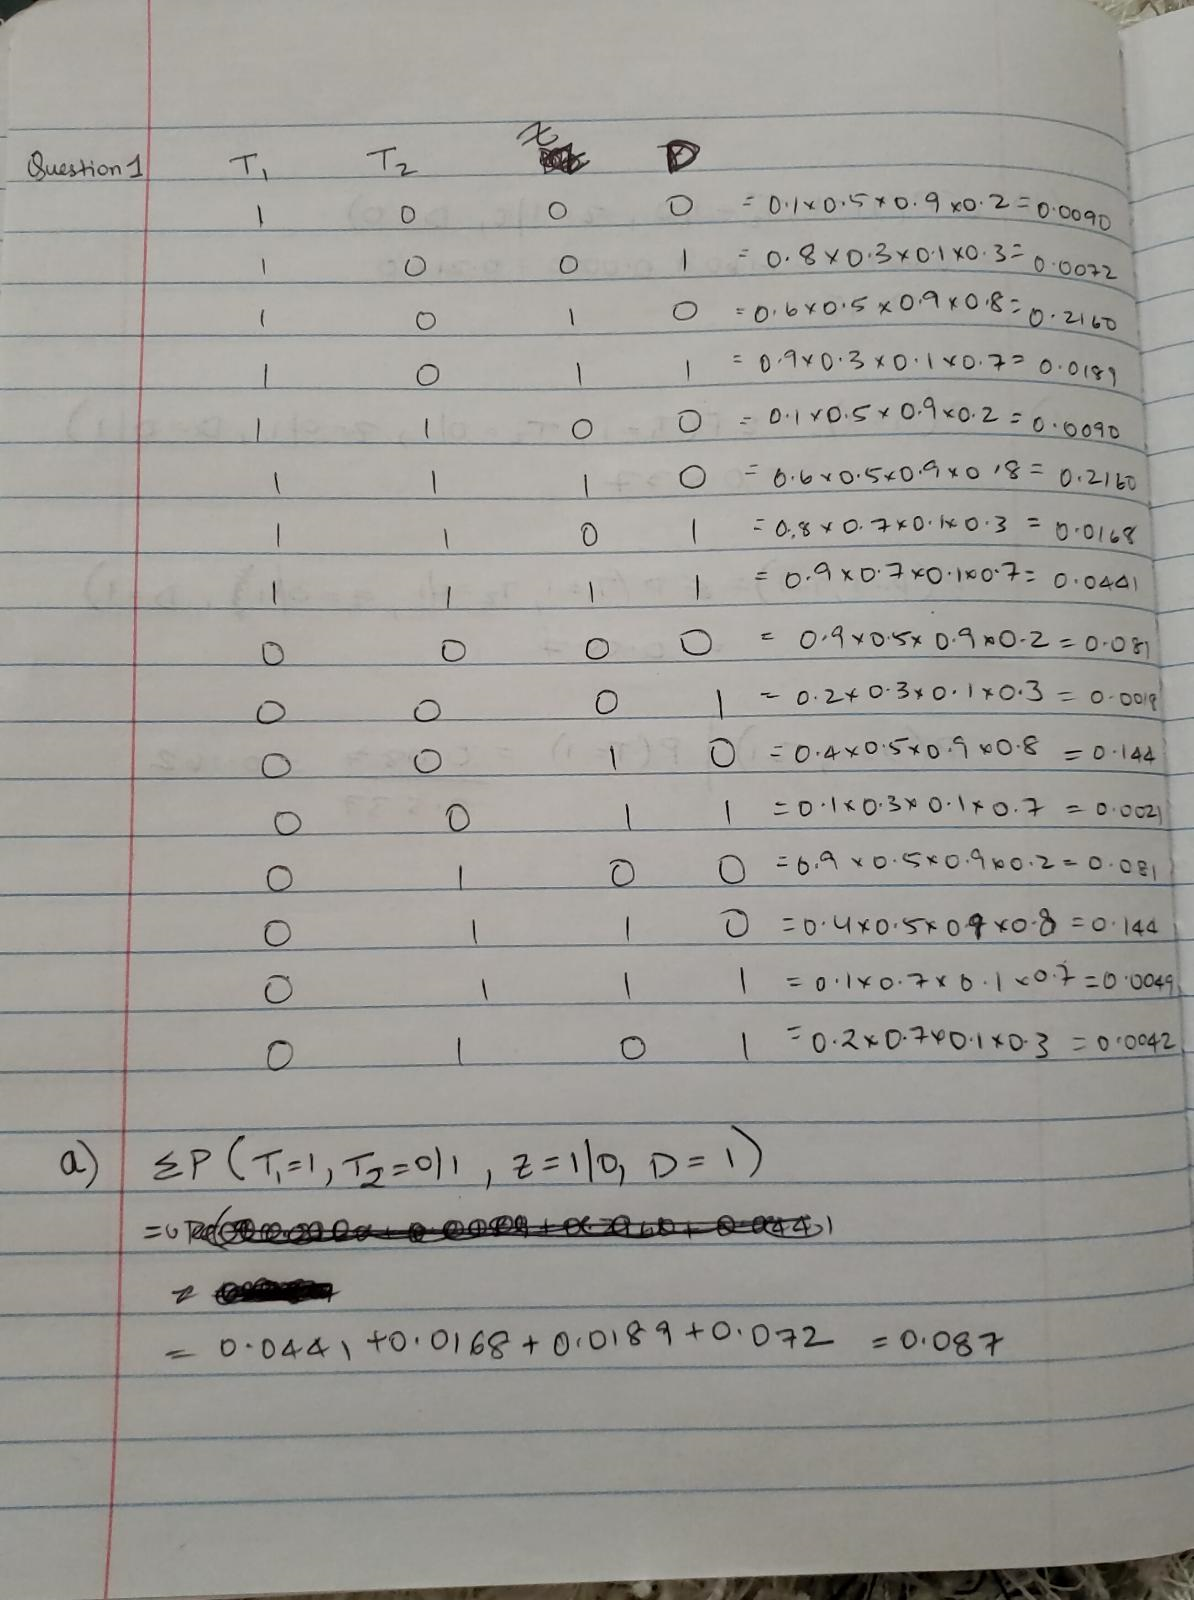 Question 1 T₁ T₂ z D
1 0 0 0 = 0.1×0.5×0.9×0.2=0.0090
1 0 0 1 = 0.8×0.3×0.1×0.3=0.0072
1 0 1 0 = 0.6×0.5×0.9×0.8=0.2160
1 0 1 1 = 0.9×0.3×0.1×0.7=0.0189
1 1 0 0 = 0.1×0.5×0.9×0.2=0.0090
1 1 1 0 = 0.6×0.5×0.9×0.8=0.2160
1 1 0 1 = 0.8×0.7×0.1×0.3=0.0168
1 1 1 1 = 0.9×0.7×0.1×0.7=0.0441
0 0 0 0 = 0.9×0.5×0.9×0.2=0.081
0 0 0 1 = 0.2×0.3×0.1×0.3=0.0018
0 0 1 0 =0.4×0.5×0.9×0.8=0.144
0 0 1 1 =0.1×0.3×0.1×0.7=0.0021
0 1 0 0 =0.9×0.5×0.9×0.2=0.081
0 1 1 0 =0.4×0.5×0.9×0.8=0.144
0 1 1 1 =0.1×0.7×0.1×0.7=0.0049
0 1 0 1 =0.2×0.7×0.1×0.3=0.0042
a) ΣP(T₁=1, T₂=0/1, z=1/0, D=1)
=
=
= 0.0441+0.0168+0.0189+0.072 =0.087